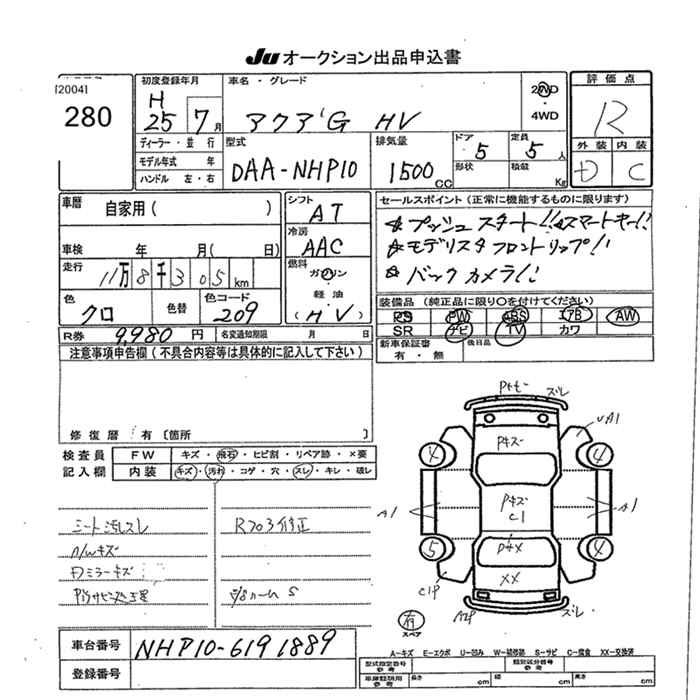 Ju オークション出品申込書
[2004]
280
初度登録年月
H 25 7月
ディーラー・並行
モデル年式 年
ハンドル 左・右
車名・グレード
アクア G HV
2WD
・
4WD
評価点
R
外装 内装
D C
型式
DAA-NHP10
排気量
1500cc
ドア
5
形状
定員
5人
積載
Kg
車歴 自家用( )
車検 年 月( 日)
走行 11万8千305km
色
クロ
色替
色コード
209
シフト
AT
冷房
AAC
燃料
ガソリン
・
軽油
(HV)
セールスポイント(正常に機能するものに限ります)
☆プッシュスタート!!☆スマートキー!!
☆モデリスタフロントリップ!!
☆バックカメラ!!
装備品(純正品に限り○を付けてください)
PS PW ABS AB AW
SR ナビ TV カワ
新車保証書
有・無
後日品
R券 9,980円 名変通知期限 月 日
注意事項申告欄(不具合内容等は具体的に記入して下さい)
修復歴 有〔箇所 〕
検査員
記入欄
FW キズ・飛石・ヒビ割・リペア跡・×要
内装 キズ・汚れ・コゲ・穴・スレ・キレ・破レ
シート汚レスレ
R703修正
n/wキズ
Fミラーキズ
Pキモ ズレ
UA1
Pキズ
4 4
Pキズ
C1
A1 A1
5 4
PキX
XX
C1P
A2P ズレ
有
スペア
車台番号 NHP10-6191889
登録番号
A-キズ E-エクボ U-凹み W-補修跡 S-サビ C-腐食 XX-交換済
型式指定番号
参考
類別区分番号
参考
車庫証明用
参考
長さ cm 幅 cm 高さ cm